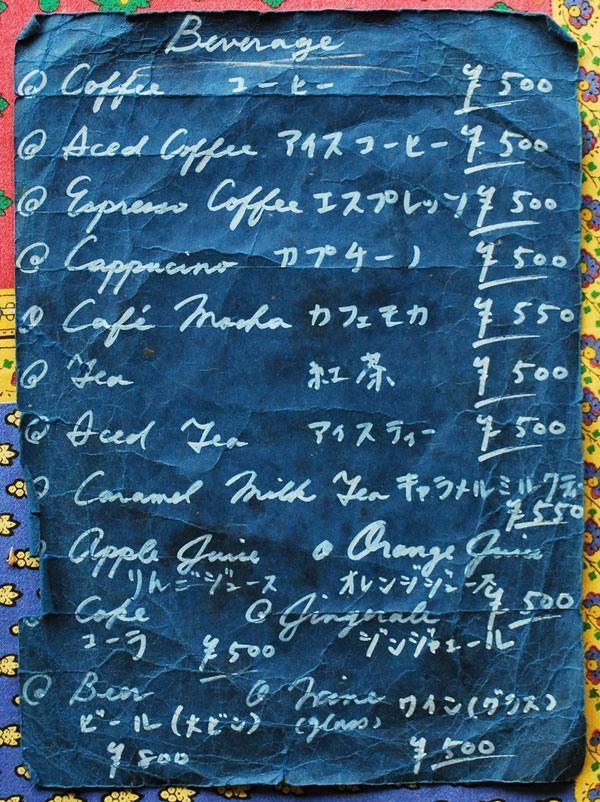 Beverage
@ Coffee コーヒー ¥500
@ Iced Coffee アイスコーヒー ¥500
@ Espresso Coffee エスプレッソ ¥500
@ Cappucino カプチーノ ¥500
@ Café Mocha カフェモカ ¥550
@ Tea 紅茶 ¥500
@ Iced Tea アイスティー ¥500
@ Caramel Milk Tea キャラメルミルクティ
¥550
@ Apple Juice @ Orange Juice
りんごジュース オレンジジュース
¥500
@ Coke @ Gingerale
コーラ ジンジャエール
¥500
@ Beer @ Wine ワイン(グラス)
ビール(大ビン) (glass)
¥800 ¥500